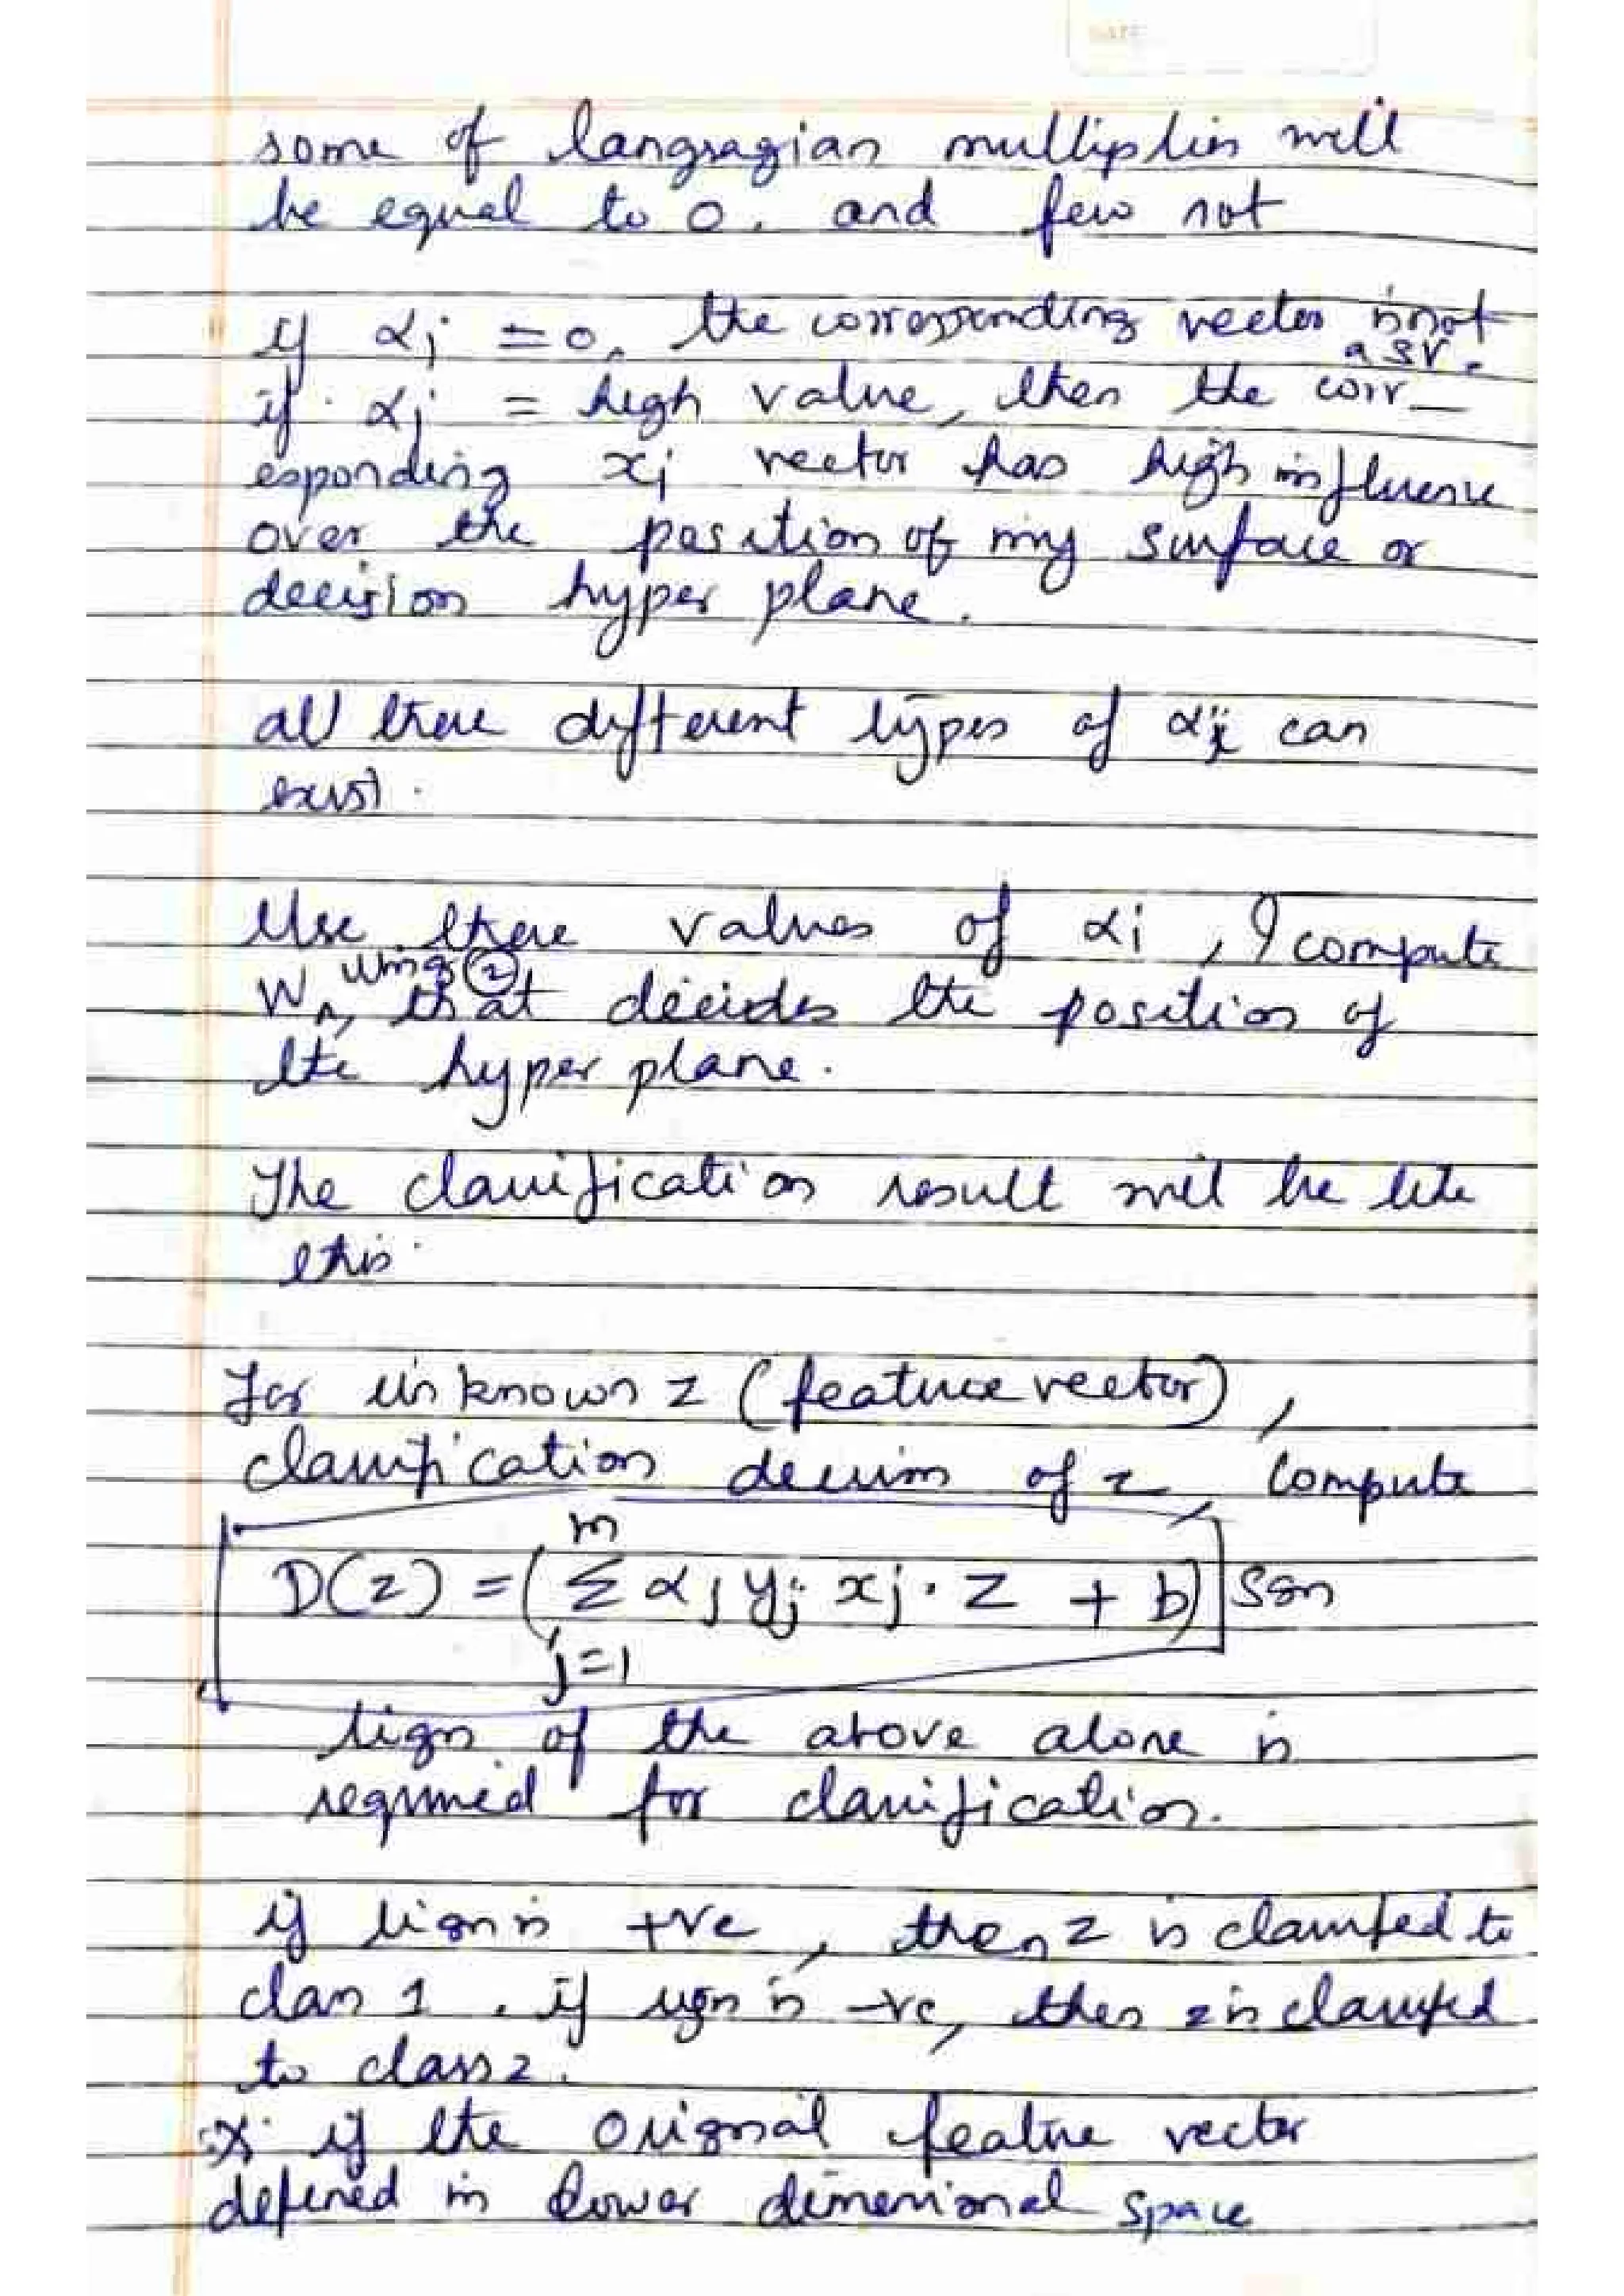 some of langragian multiplies will
be equal to 0. and few not
if αj = 0, the corresponding vector is not
a SV.
if αj = high value, then the corr-
esponding xj vector has high influence
over the position of my surface or
decision hyper plane.
all these different types of αj can
exist.
Use these values of αi, I compute
W using ②, that decides the position of
the hyper plane.
The classification result will be like
this.
For unknown z (feature vector),
classification decision of z, compute
D(z) = ( m Σ j=1 αj yj xj . z + b) sgn
sign of the above alone is
required for classification.
if sign is +ve, then z is classified to
class 1. if sign is -ve, then z is classified
to class 2.
x if the original feature vector
defined in lower dimensional space